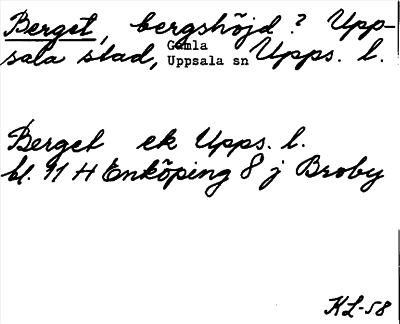 Berget, bergshöjd? Upp-
sala stad, Gamla Uppsala sn Upps. l.
Berget ek Upps. l.
bl. 11 H Enköping 8 j Broby
KL-58